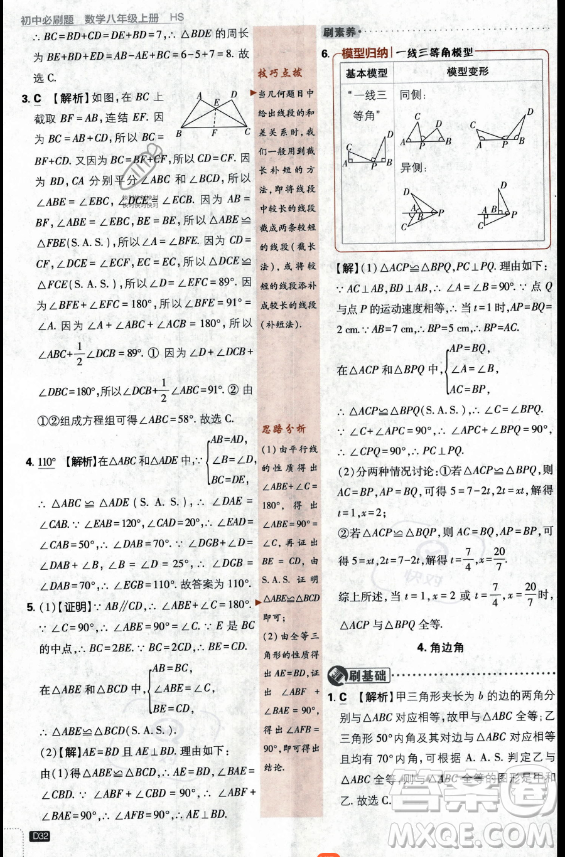 初中必刷题 数学八年级上册 HS
∴ BC=BD+CD=DE+BD+7,∴ △BDE 的周
长为 BD+BE+DE=BE+BC-7=6+5-7=8. 故
选 C.
3. C 【解析】如图,在 BC 上
截取 BF=AB,连结 EF. 因
为 BC=AB+CD,所以CD=
BF. 又因为 BC=BF+CF,所以CD=CF. 因为
BD,CA 分别平分∠ABC 和∠BCD,所以
∠ABE=∠EBC,∠DCE=∠BCE. 因为 AB=
BF,∠ABE=∠EBC,BE=BE,所以△ABE≌
△FBE(S.A.S.),所以∠A=∠BFE. 因为 CD=
CF,∠DCE=∠BCE,CE=CE,所以△DCE≌
△FCE(S.A.S.),所以∠D=∠EFC=89°. 因
为∠BFE+∠EFC=180°,所以∠BFE=91°=
∠A. 因为∠A+∠ABC+∠ACB=180°,所以
∠ABC+1/2∠DCB=89°. ① 因为∠D+∠DCB+
∠DBC=180°,所以1/2∠ABC+∠DCB=91°. ② 由
①②组成方程组可得∠ABC=58°. 故选 C.
4. 110° 【解析】在△ABC 和△ADE 中,∵
AB=AD,
∠B=∠D,
BC=DE,
∴ △ABC≌△ADE(S.A.S.),∴ ∠DAE=
∠CAB. ∵ ∠EAB=120°,∠CAD=20°,∴ ∠EAD=
∠CAB=50°,∴ ∠DAB=70°. ∵ ∠DGB+∠D=
∠DAB+∠B,∠B=∠D=25°,∴ ∠DGB=
∠DAB=70°,∴ ∠EGB=110°. 故答案为 110°.
5. (1)【证明】∵ AB∥CD,∴ ∠ABE+∠C=180°.
∵ ∠C=90°,∴ ∠ABE=90°=∠C. ∵ E 是 BC
的中点,∴ BC=2BE. ∵ BC=2CD,∴ BE=CD.
在△ABE 和△BCD 中,
AB=BC,
∠ABE=∠C,
BE=CD,
∴ △ABE≌△BCD(S.A.S.).
(2)【解】AE=BD 且 AE⊥BD. 理由如下:
由(1)得△ABE≌△BCD,∴ AE=BD,∠BAE=
∠CBD. ∵ ∠ABF+∠CBD=90°,∴ ∠ABF+
∠BAE=90°,∴ ∠AFB=90°,∴ AE⊥BD.
D32
技巧点拨
当几何题目中
给出线段的和
差关系时,我
们一般用到截
长补短的方
法,即将线段
中较长的线段
截成两条较短
的线段(截长
法),或将较
短的线段添补
成较长的线段
(补短法).
思路分析
(1)由平行线
的性质得出
∠ABE+∠C=
180°,得出
∠ABE=90°=
∠C,再证出
BE=CD,由
S.A.S. 证明
△ABE≌△BCD
即可;
(2)由全等三
角形的性质得
出AE=BD,证
出∠ABF+
∠BAE=90°,
得出∠AFB=
90°,即可得出
结论.
刷素养
6. 模型归纳 一线三等角模型
基本模型 模型变形
“一线三
等角”
同侧:
异侧:
【解】(1)△ACP≌△BPQ,PC⊥PQ. 理由如下:
∵ AC⊥AB,BD⊥AB,∴ ∠A=∠B=90°. ∵ 点 Q
与点 P 的运动速度相等,∴ 当 t=1 时,AP=BQ=
2 cm. ∵ AB=7 cm,AC=5 cm,∴ BP=AC.
在△ACP 和△BPQ 中,
AP=BQ,
∠A=∠B,
AC=BP,
∴ △ACP≌△BPQ(S.A.S.),∴ ∠C=∠BPQ.
∵ ∠C+∠APC=90°,∴ ∠APC+∠BPQ=90°,
∴ ∠CPQ=90°,∴ PC⊥PQ.
(2)分两种情况讨论:①若△ACP≌△BPQ,则
AC=BP,AP=BQ,可得 5=7-2t,2t=xt,解得
t=1,x=2;
②若△ACP≌△BQP,则 AC=BQ,AP=BP,可
得 5=xt,2t=7-2t,解得 t=7/4,x=20/7.
综上所述,当 t=1,x=2 或 t=7/4,x=20/7时,
△ACP 与△BPQ 全等.
4. 角边角
刷基础
1. C 【解析】甲三角形夹长为 b 的边的两角分
别与△ABC 对应相等,故甲与△ABC 全等;乙
三角形 50°内角及所对边与△ABC 对应相等
且均有 70°内角,可根据 A.A.S. 判定乙与
△ABC 全等.则与△ABC 全等的图形是甲和
乙. 故选 C.
答案圈
MXQE.COM